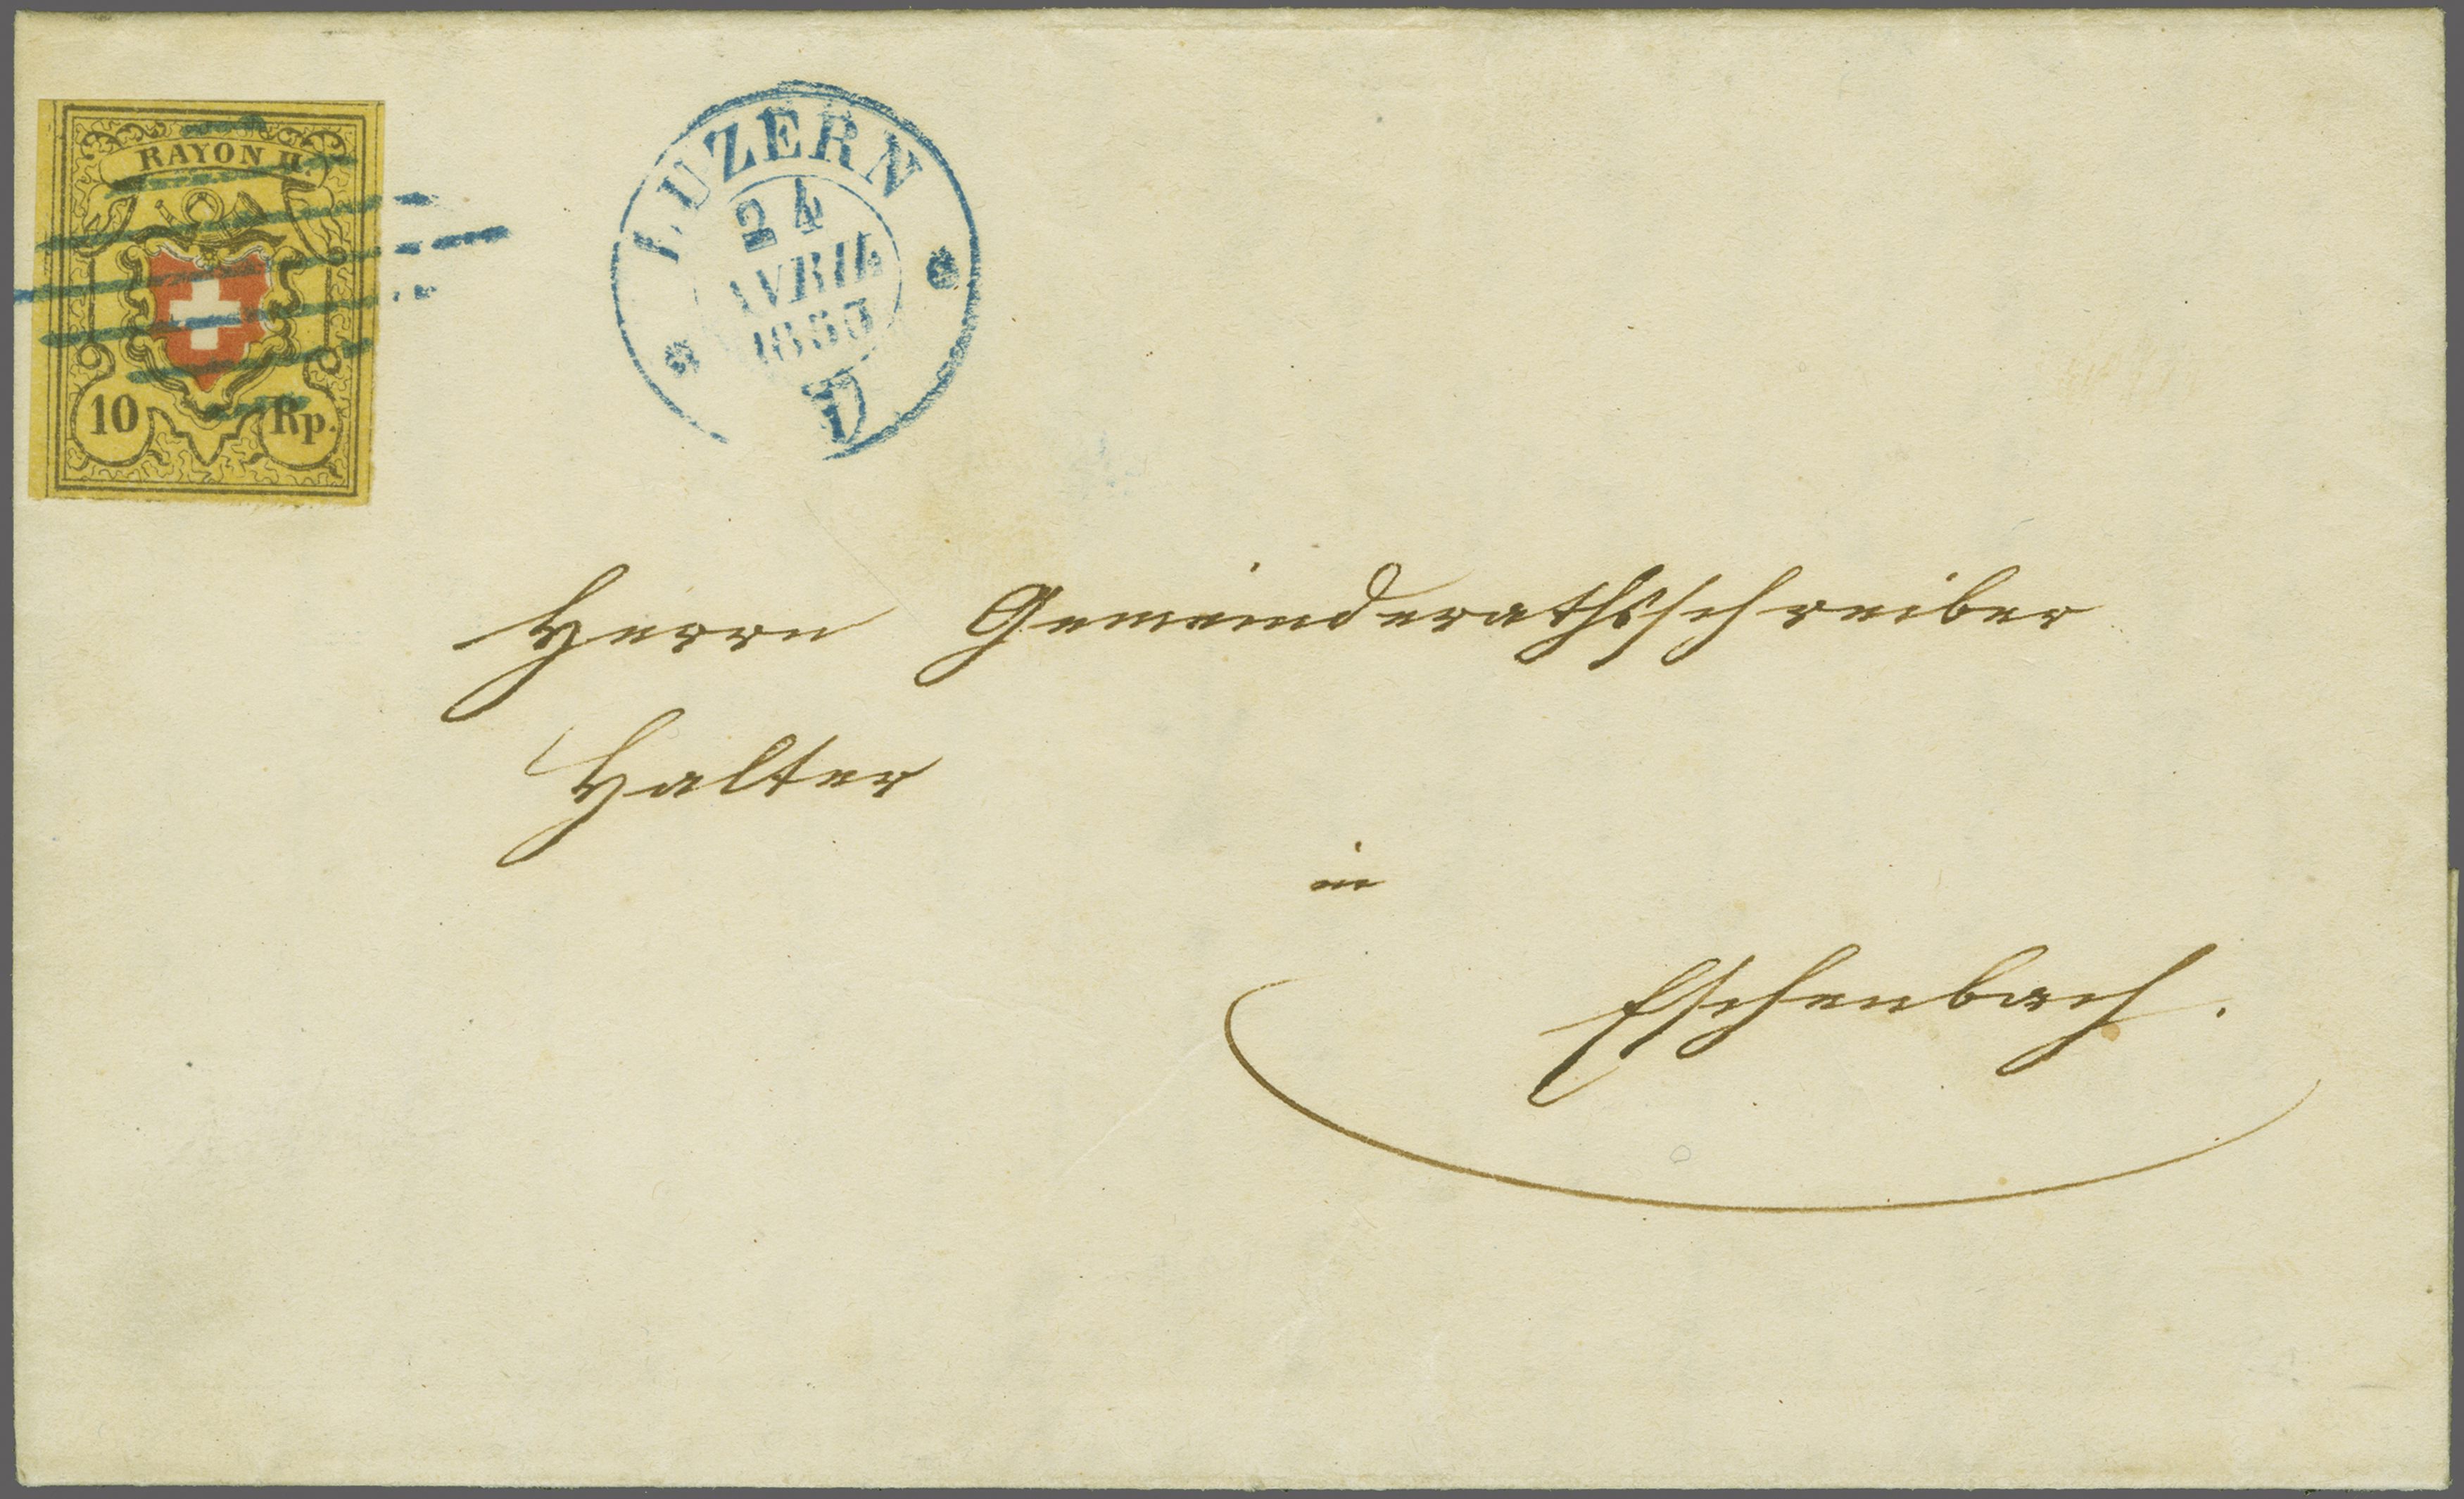 RAYON II.
10 Rp.
LUZERN
24
AVRIL
1853
Herrn Gemeinderathsschreiber
Halter
in
Eschenbach.